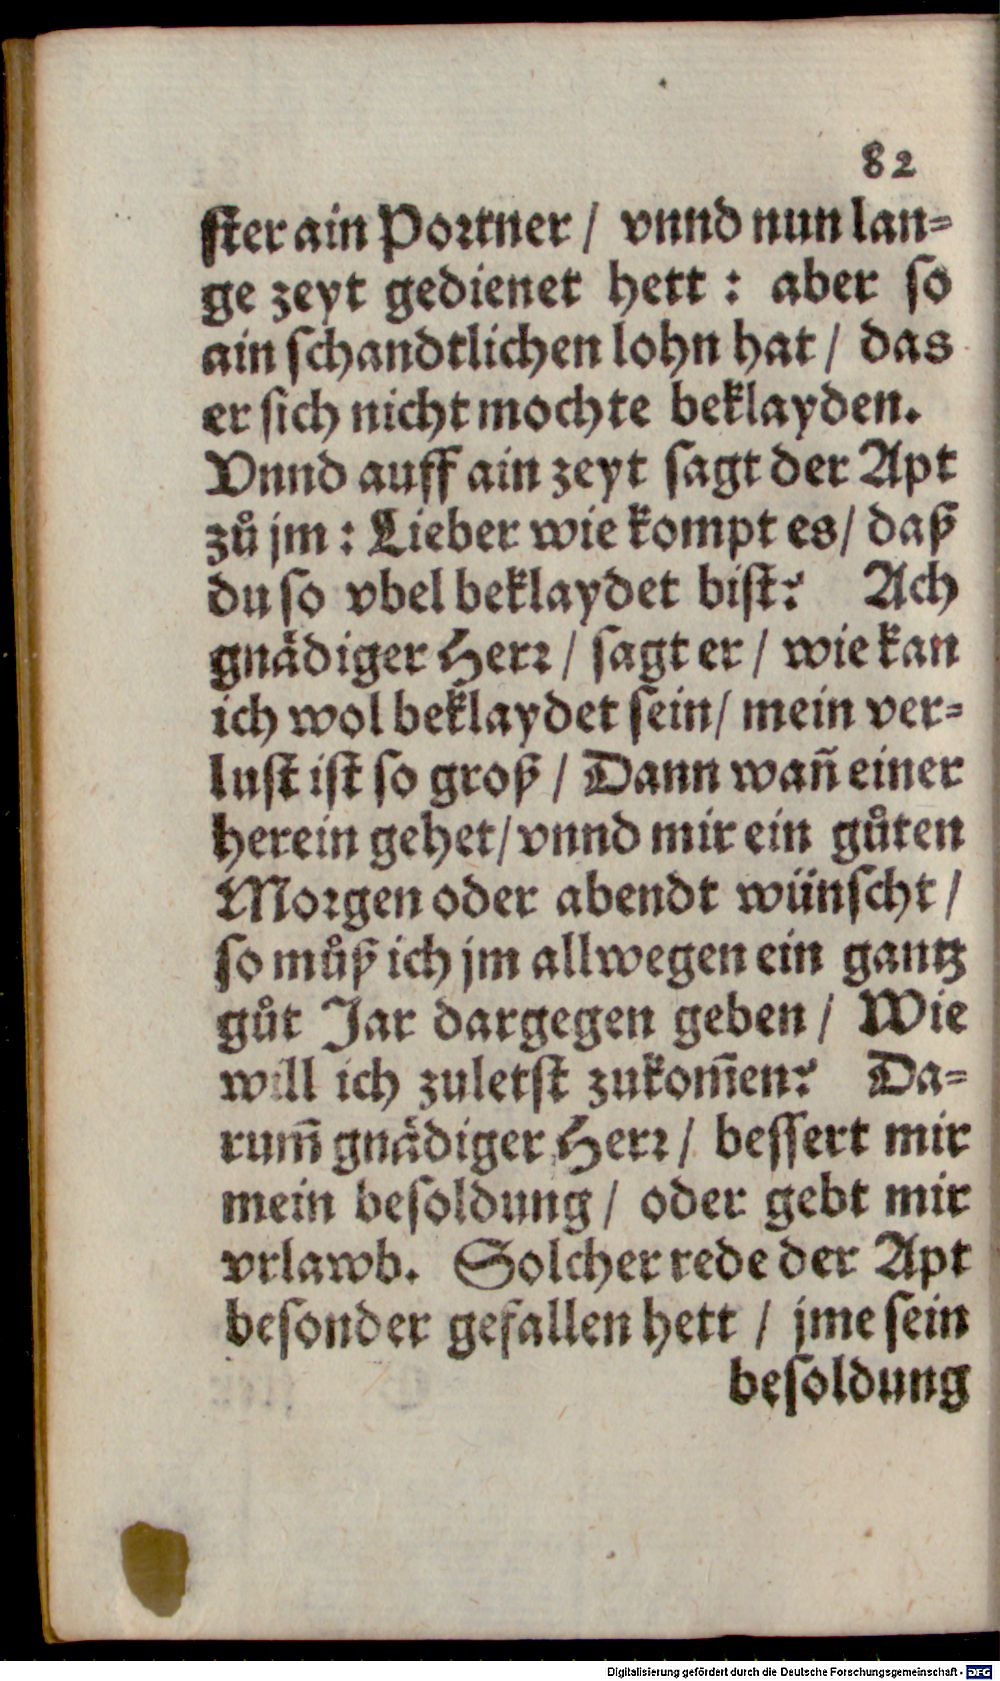 82
ster ain Portner / vnnd nun lan=
ge zeyt gedienet hett : aber so
ain schandtlichen lohn hat / das
er sich nicht mochte beklayden.
Vnnd auff ain zeyt sagt der Apt
zů jm : Lieber wie kompt es / daß
du so vbel beklaydet bist? Ach
gnädiger Herr / sagt er / wie kan
ich wol beklaydet sein / mein ver=
lust ist so groß / Dann wañ einer
herein gehet / vnnd mir ein gůten
Morgen oder abendt wünscht /
so můß ich jm allwegen ein gantz
gůt Jar dargegen geben / Wie
will ich zuletst zukom̃en? Da=
rum̃ gnädiger Herr / bessert mir
mein besoldung / oder gebt mir
vrlawb. Solcher rede der Apt
besonder gefallen hett / jme sein
besoldung
Digitalisierung gefördert durch die Deutsche Forschungsgemeinschaft - DFG